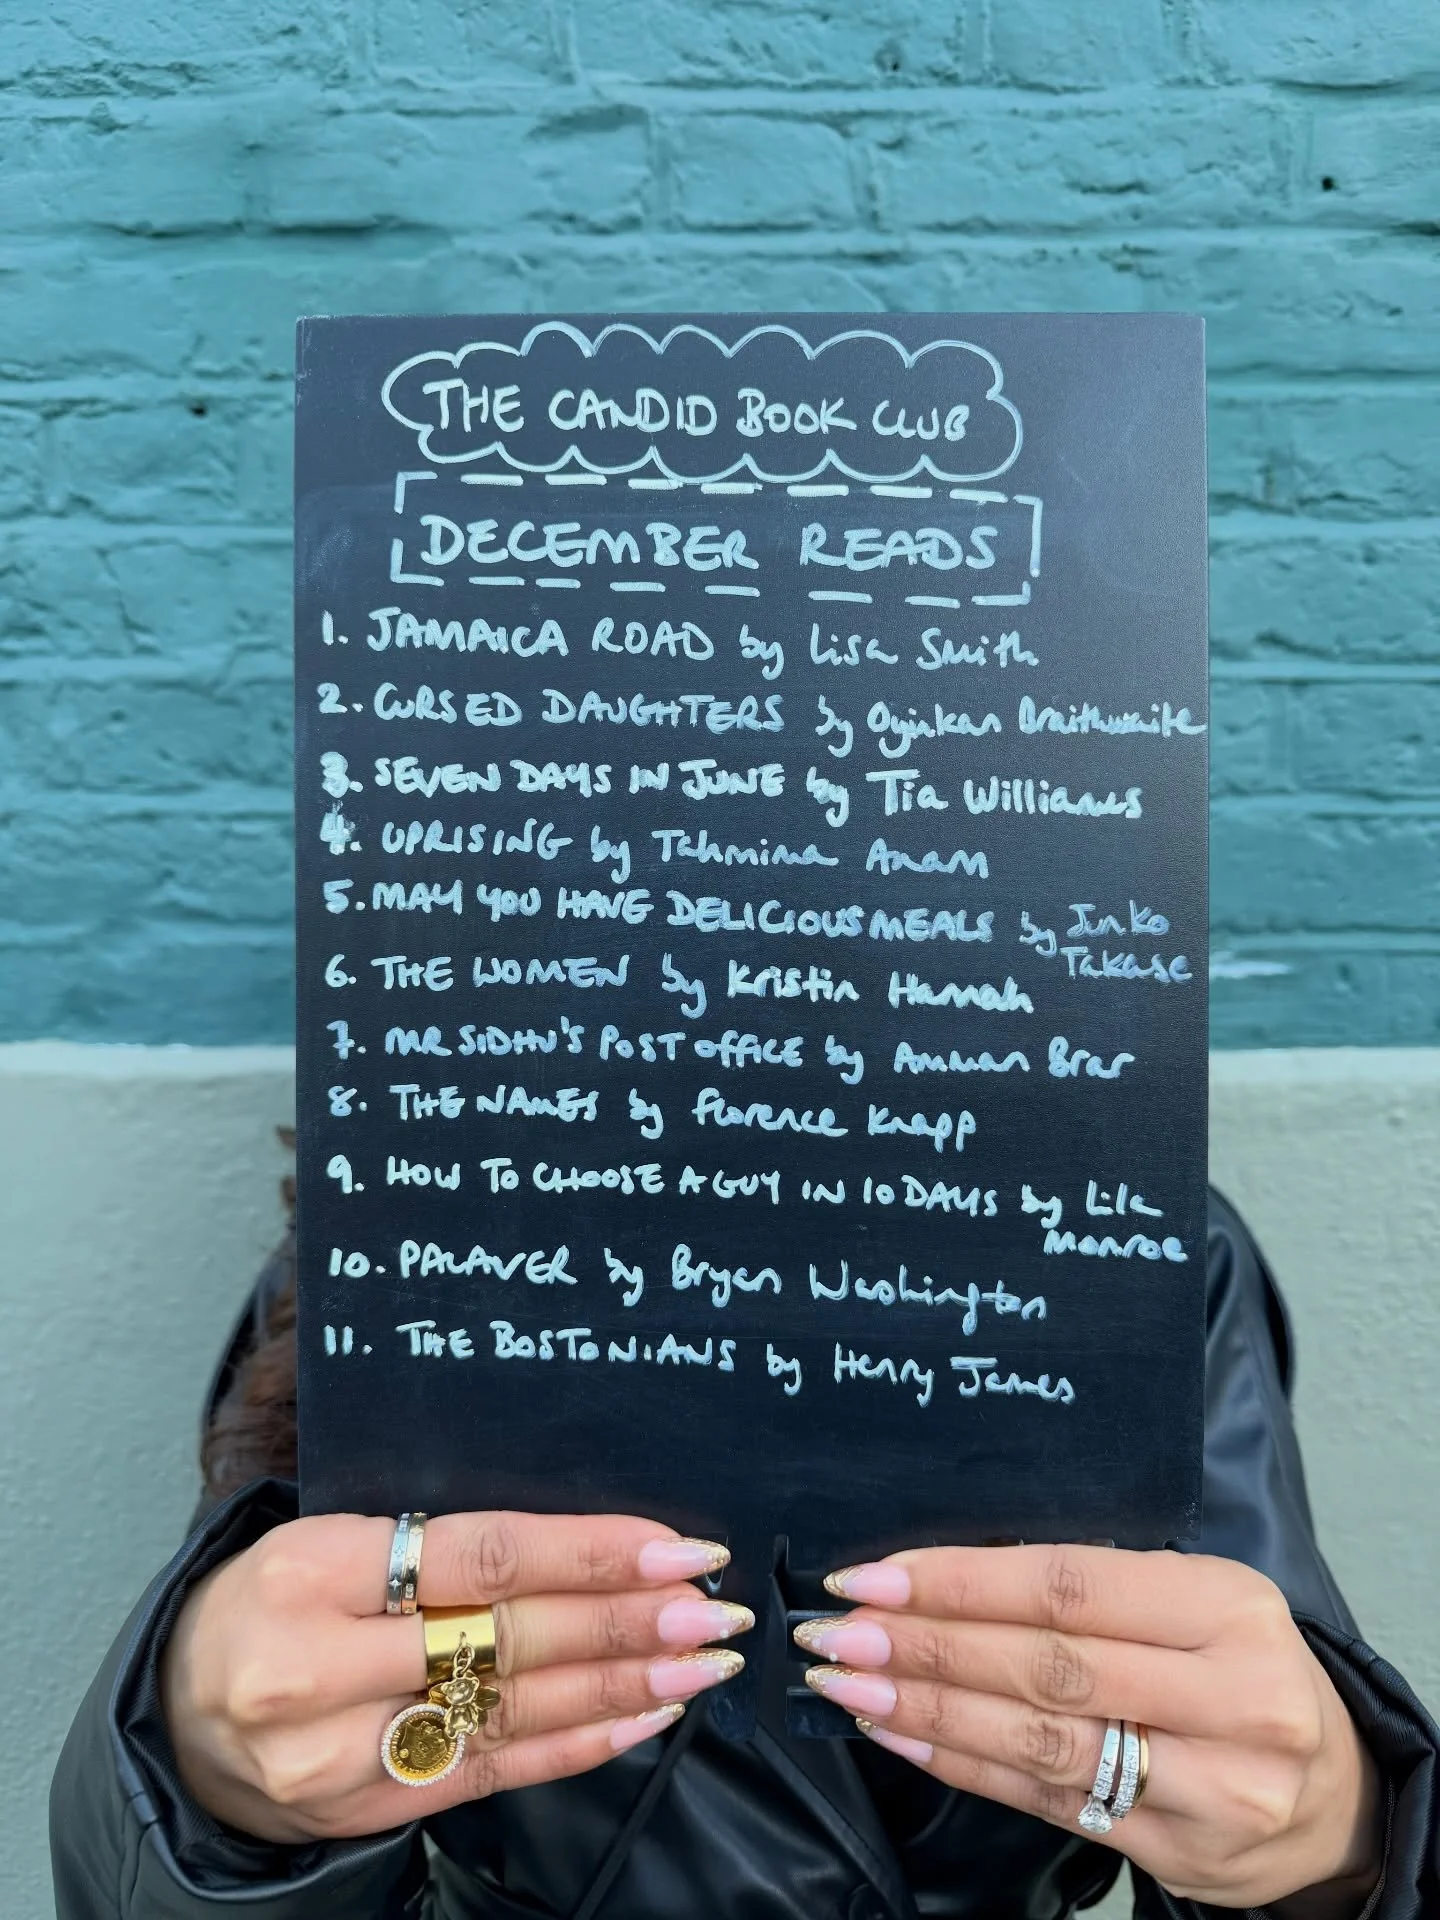 THE CANDID BOOK CLUB
DECEMBER READS
1. JAMAICA ROAD by Lisa Smith
2. CURSED DAUGHTERS by Oyinkan Braithwaite
3. SEVEN DAYS IN JUNE by Tia Williams
4. UPRISING by Tahmima Anam
5. MAY YOU HAVE DELICIOUS MEALS by Junko
Takase
6. THE WOMEN by Kristin Hannah
7. MR SIDHU'S POST OFFICE by Amman Brar
8. THE NAMES by Florence Knapp
9. HOW TO CHOOSE A GUY IN 10 DAYS by Lila
Monroe
10. PALAVER by Bryan Washington
11. THE BOSTONIANS by Henry James